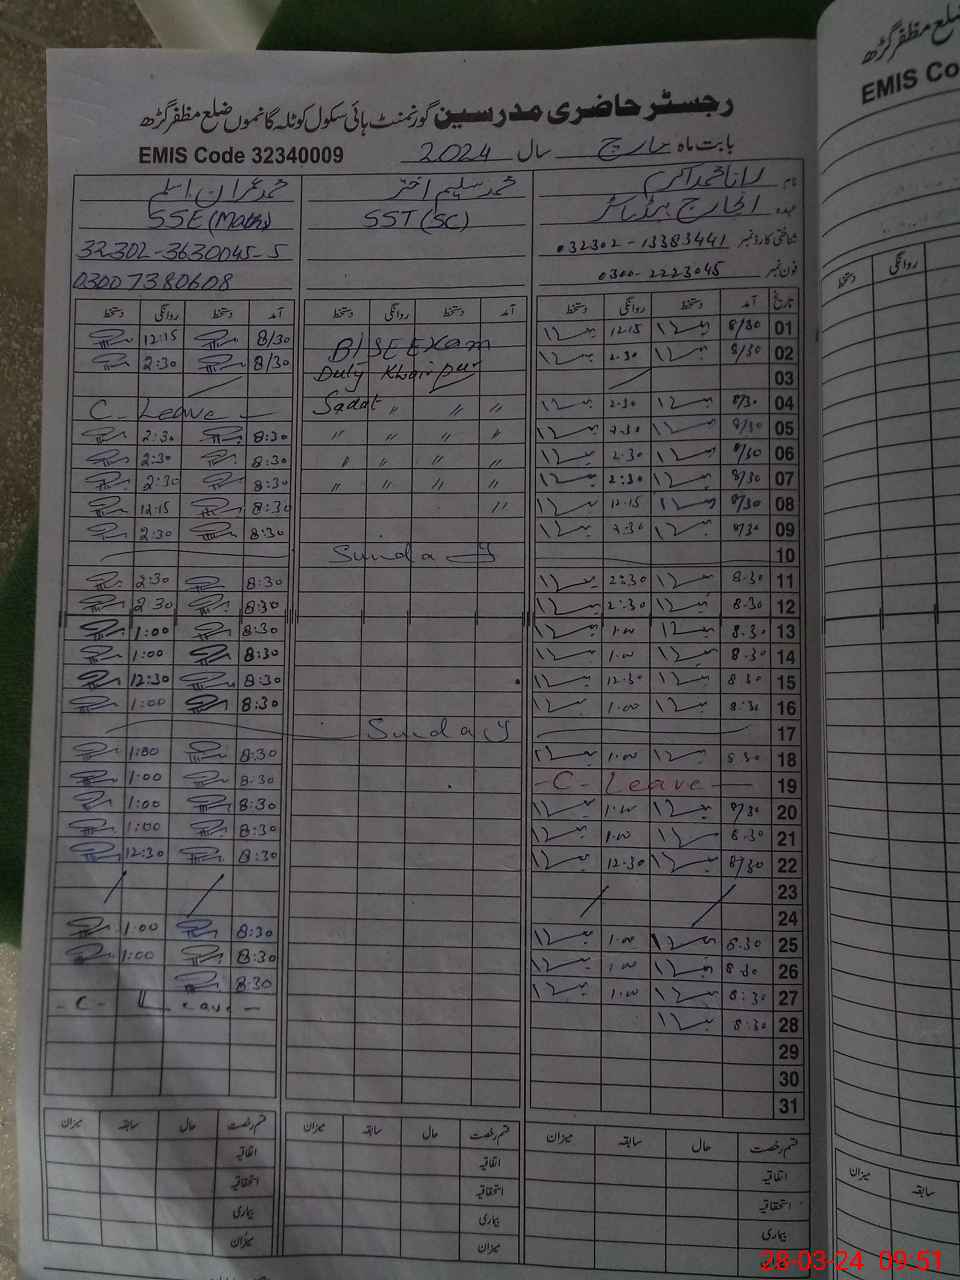 رجسٹر حاضری مدرسین گورنمنٹ ہائی سکول کوٹلہ گانموں ضلع مظفر گڑھ
EMIS Code 32340009 بابت ماہ مارچ سال 2024
نام
محمد سلیم اختر
محمد عمران اسلم
عہدہ انچارج ہیڈ ماسٹر
SST (SC)
SSE (Maths)
شناختی کارڈ نمبر 032302-13383441
32302-3630045-5
فون نمبر 0300-2223045
03007380608
تاریخ آمد دستخط روانگی دستخط آمد دستخط روانگی دستخط آمد دستخط روانگی دستخط
01 8/30 12:15 8/30 12:15
BISE Exam
02 8/30 2.30 8/30 2:30
Duty Khairpur
03
04 8/30 2.30 Sadat " " " C-Leave
05 8/30 2.30 " " " " 8:30 2:30
06 8/30 2.30 " " " " 8:30 2:30
07 8/30 2:30 " " " " 8:30 2:30
08 8/30 12.15 " 8:30 12:15
09 8/30 2.30 8:30 2:30
10 Sunday
11 8.30 2:30 8:30 2:30
12 8.30 2:30 8:30 2 30
13 8.30 1.00 8:30 1:00
14 8.30 1.00 8:30 1:00
15 8.30 12.30 8:30 12:30
16 8:30 1.00 8:30 1:00
17 Sunday
18 8 30 1.00 8:30 1:00
19 -C-Leave- 8:30 1:00
20 8/30 1.00 8:30 1:00
21 8.30 1.00 8:30 1:00
22 8/30 12.30 8:30 12:30
23
24
25 8.30 1.00 8:30 1:00
26 8.30 1.00 8:30 1:00
27 8:30 1.00 8:30
28 8:30 -C-Leave-
29
30
31
قسم رخصت حال سابقہ میزان قسم رخصت حال سابقہ میزان قسم رخصت حال سابقہ میزان
اتفاقیہ اتفاقیہ اتفاقیہ
استحقاقیہ استحقاقیہ استحقاقیہ
بیماری بیماری بیماری
میزان میزان
ضلع مظفر گڑھ
EMIS Co
روانگی دستخط
سابقہ میزان
28-03-24 09:51